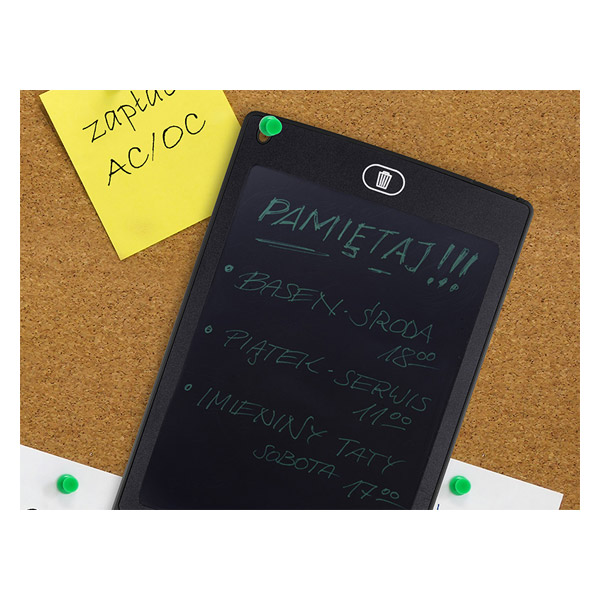 zapłac
AC/OC
PAMIĘTAJ!!!
• BASEN-ŚRODA
18⁰⁰
• PIĄTEK-SERWIS
11⁰⁰
• IMIENINY TATY
SOBOTA
17⁰⁰